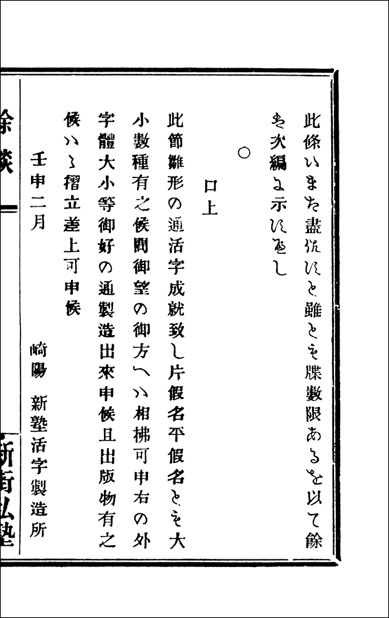 此條いまだ盡さずと雖ども牒數限あるを以て餘
は次編に示すべし
○
口上
此節雛形の通活字成就致し片假名平假名とも大
小數種有之候間御望の御方へハ相拂可申右の外
字體大小等御好の通製造出來申候且出版物有之
候ハヾ摺立差上可申候
壬申二月　　　　崎陽 新塾活字製造所
餘談
新街私塾